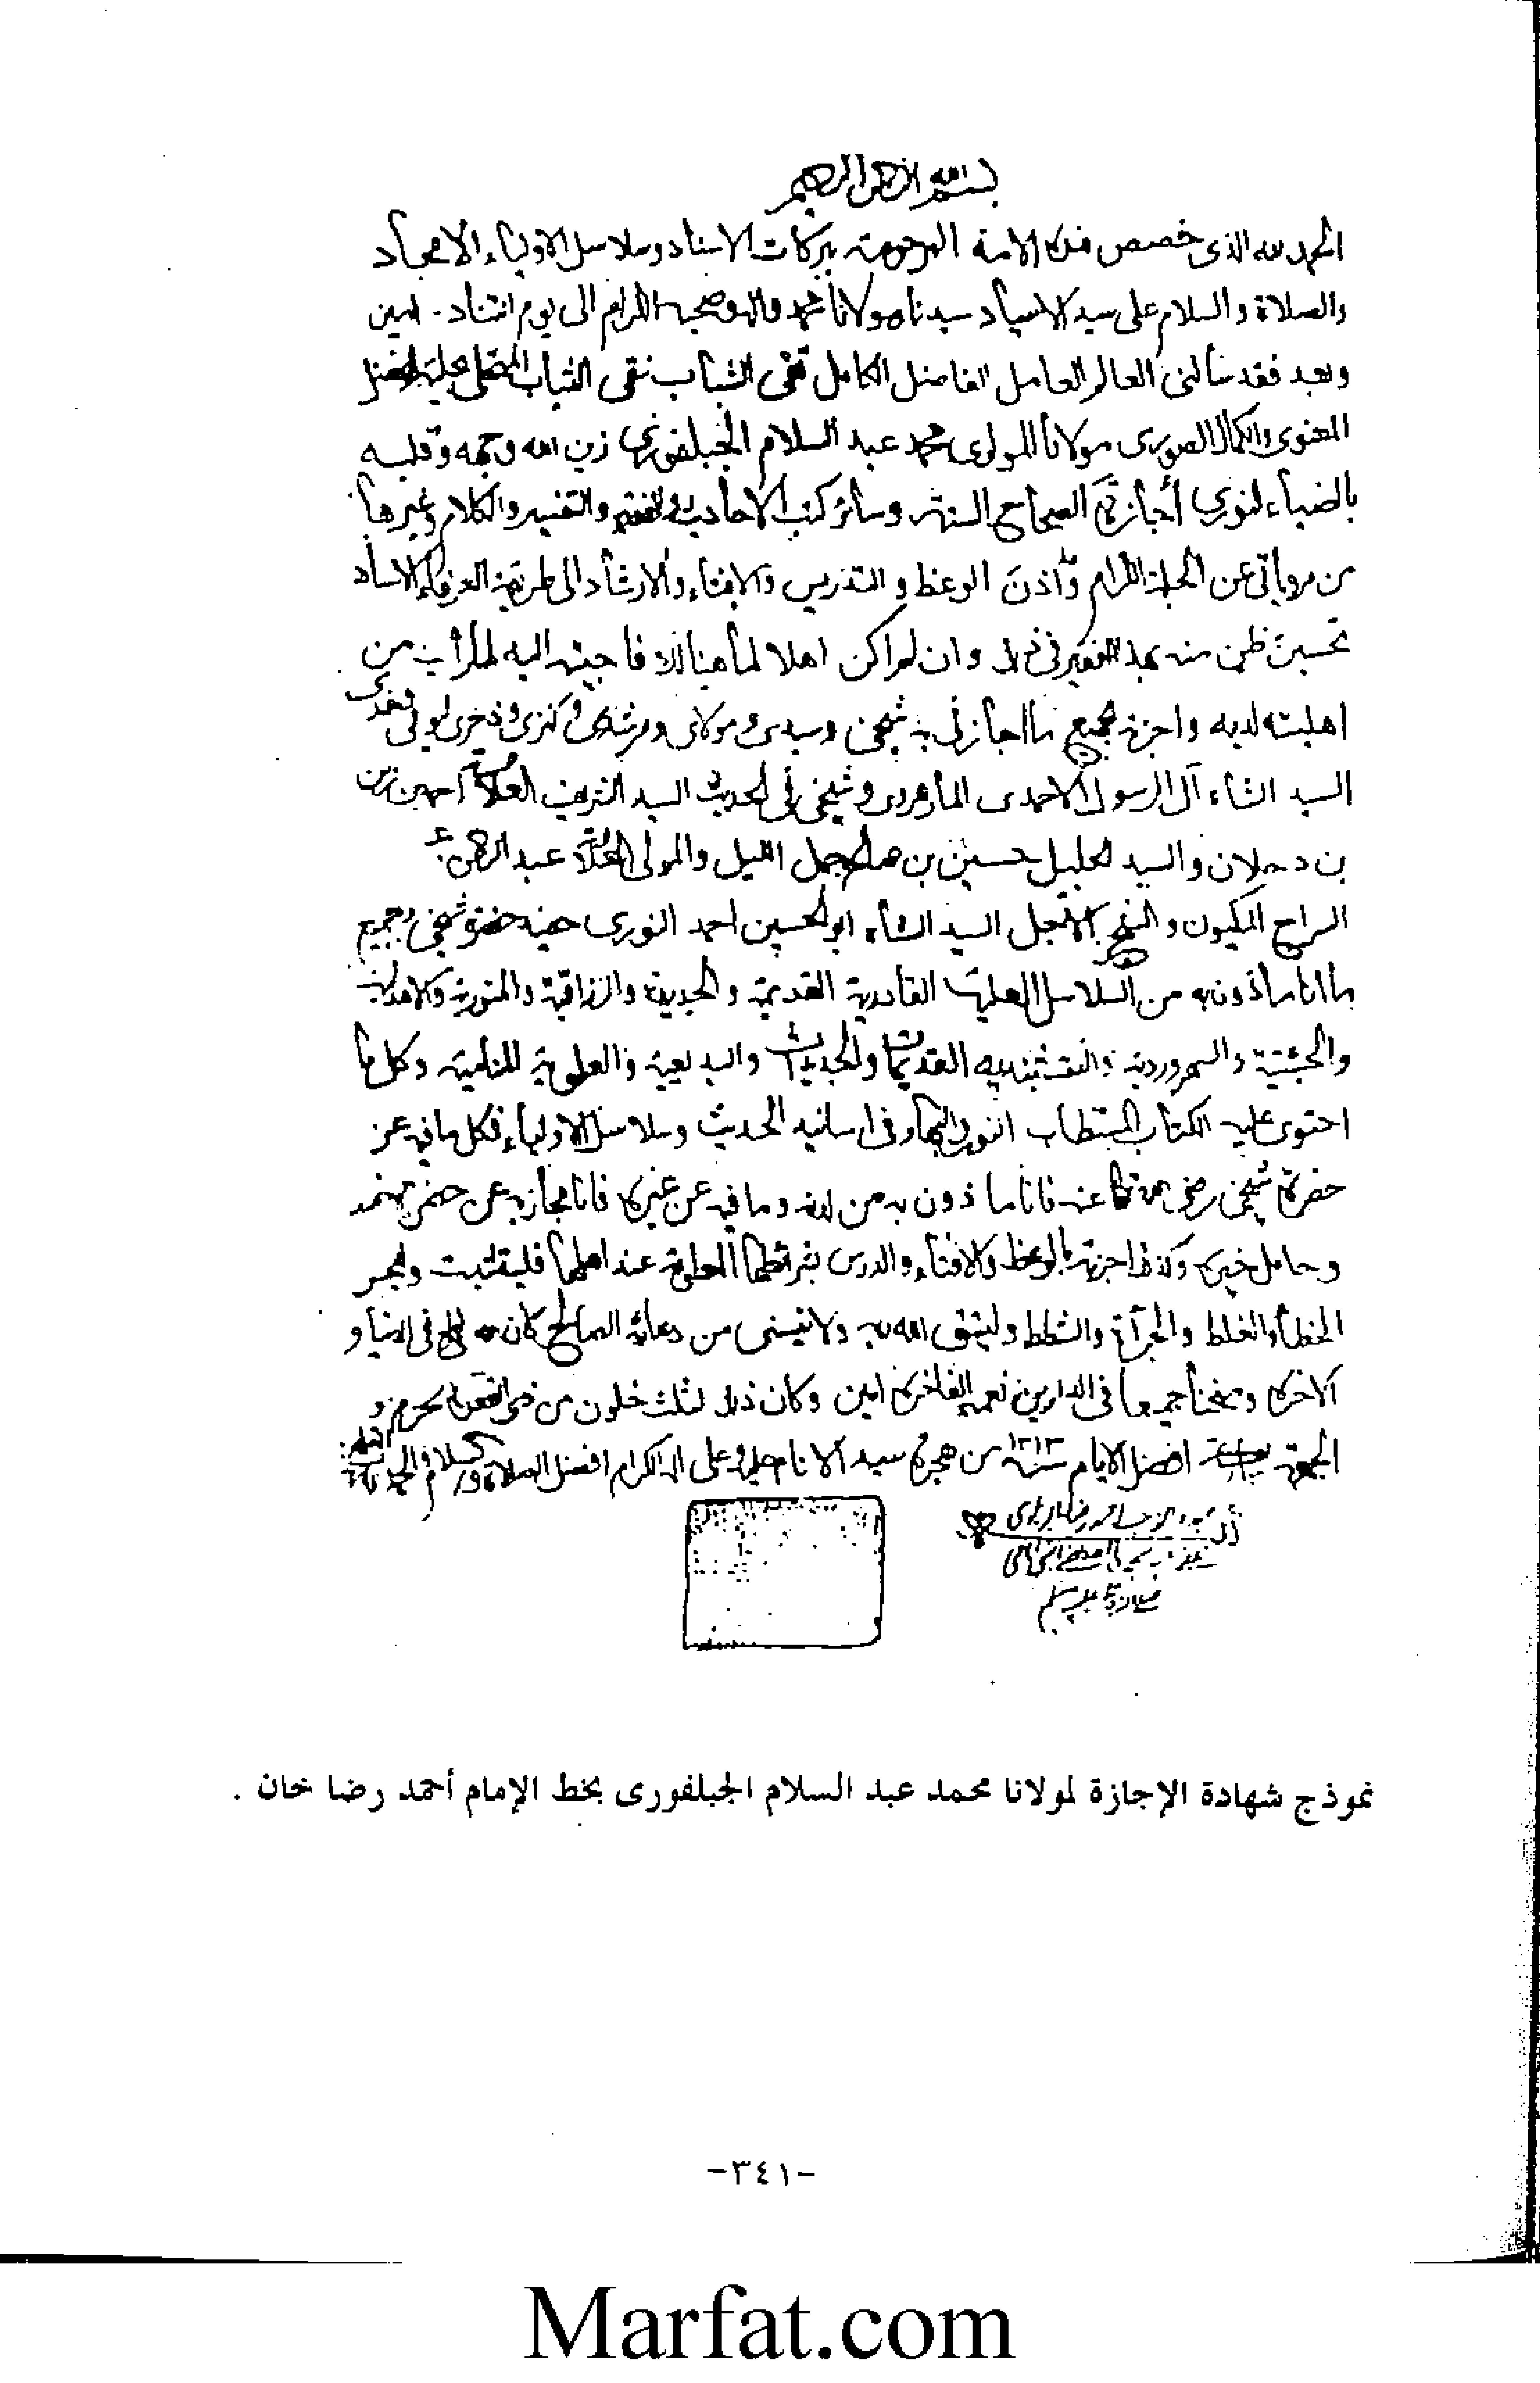 بسم الله الرحمن الرحيم
الحمد لله الذى خصص هذه الامة المرحومة ببركات الاسناد وسلاسل الاولياء الامجاد
والصلاة والسلام على سيد الاسياد سيدنا ومولانا محمد واله وصحبه الكرام الى يوم التناد - امين
وبعد فقد سألنى العالم العامل الفاضل الكامل تقى الشباب نقى الثياب المتحلى بحلية الفضل
المعنوى والكمال الصورى مولانا المولوى محمد عبد السلام الجبلفورى زين الله وجهه وقلبه
بالضياء النورى أجازة الصحاح الستة وسائر كتب الاحاديث والفقه والتفسير والكلام وغيرها
من مروياتى عن الجلة الكرام وأذن الوعظ و التدريس والافتاء والارشاد الى طريقة العرفاء الاسياد
تحسين ظن منه بهذا الفقير فى ذلك وان لم اكن اهلا لما هنالك فاجبته اليه لما رأيت من
اهليته لديه واجزته بجميع ما اجازنى به شيخى وسيدى ومولاى ومرشدى وكنزى وذخرى ليومى وغدى
السيد الشاه آل الرسول الاحمدى المارهروى وشيخى فى الحديث السيد الشريف العلامة احمد بن زين
بن دحلان والسيد الجليل حسين بن صالح جمل الليل والمولى عبد الرحمن
السراج المكيون و السيد الشاه ابو الحسين احمد النورى حفيد حضرة شيخى وجميع
ما انا ماذون به من السلاسل العلية القادرية القديمة والجديدة والرزاقية والمنورية
والچشتية والسهروردية والنقشبندية القديمة والجديدة والبديعية والعلوية المنامية وكل ما
احتوى عليه الكتاب المستطاب النور والبهاء فى اسانيد الحديث وسلاسل الاولياء فكل ما فيه عن
حضرة شيخى رضى الله تعالى عنه فانا ماذون به من لدنه وما فيه عن غيره فانا مجاز به عن حضرة
وحامل خيره وكذا اجزته بالوعظ والافتاء والدرس بشرائطها المعلومة عند اهلها فليتثبت وليحذر
الخطأ والغلط والجرأة والشطط وليتق الله ربه ولا ينسنى من دعائه الصالح كان الله لى وله فى الدنيا و
الاخرة ومنحنا جميعا فى الدارين نعمه الفاخرة امين وكان ذلك لثلث خلون من ذى القعدة المحرم و
الجمعة افضل الايام سنة ١٣١٣ من هجرة سيد الانام عليه وعلى اله الكرام افضل الصلاة والسلام
نموذج شهادة الإجازة لمولانا محمد عبد السلام الجبلفورى بخط الإمام أحمد رضا خان .
-٣٤١-
Marfat.com